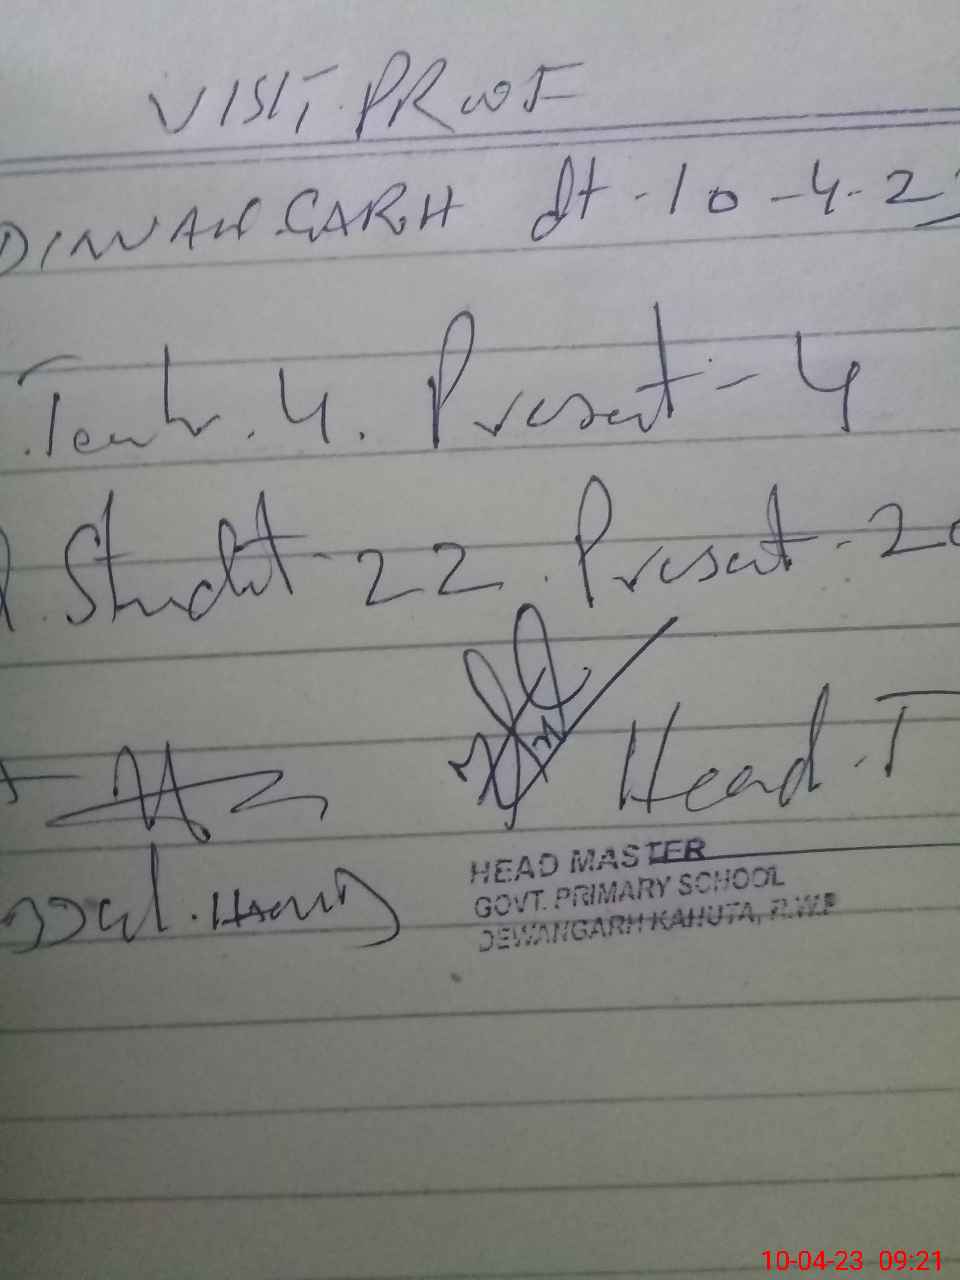 VISIT PROOF
DINWAN GARH dt-10-4-2
Teachr. 4. Present - 4
Studet - 22. Present - 20
Head. T
HEAD MASTER
GOVT. PRIMARY SCHOOL
DEWANGARH KAHUTA, R.W.P
10-04-23 09:21